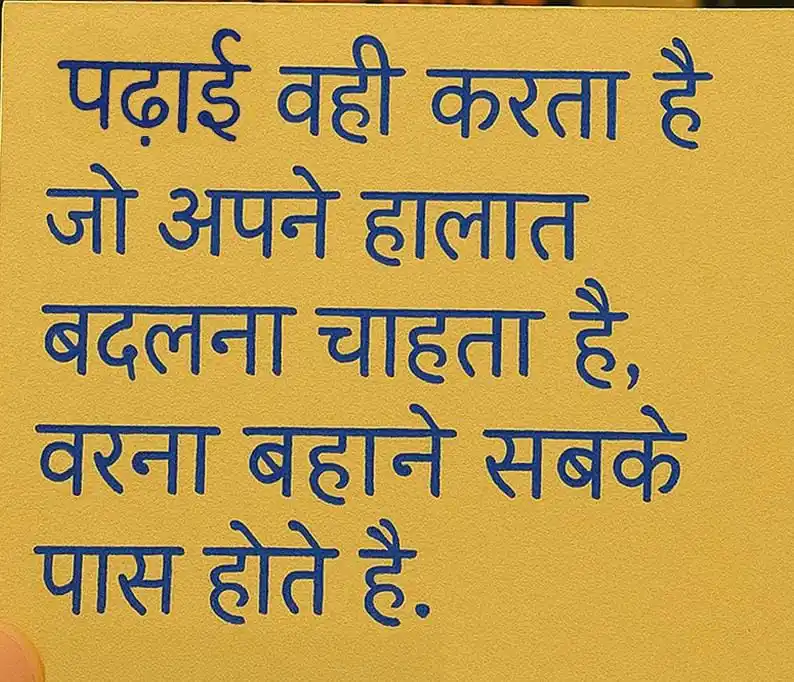 पढ़ाई वही करता है
जो अपने हालात
बदलना चाहता है,
वरना बहाने सबके
पास होते है.